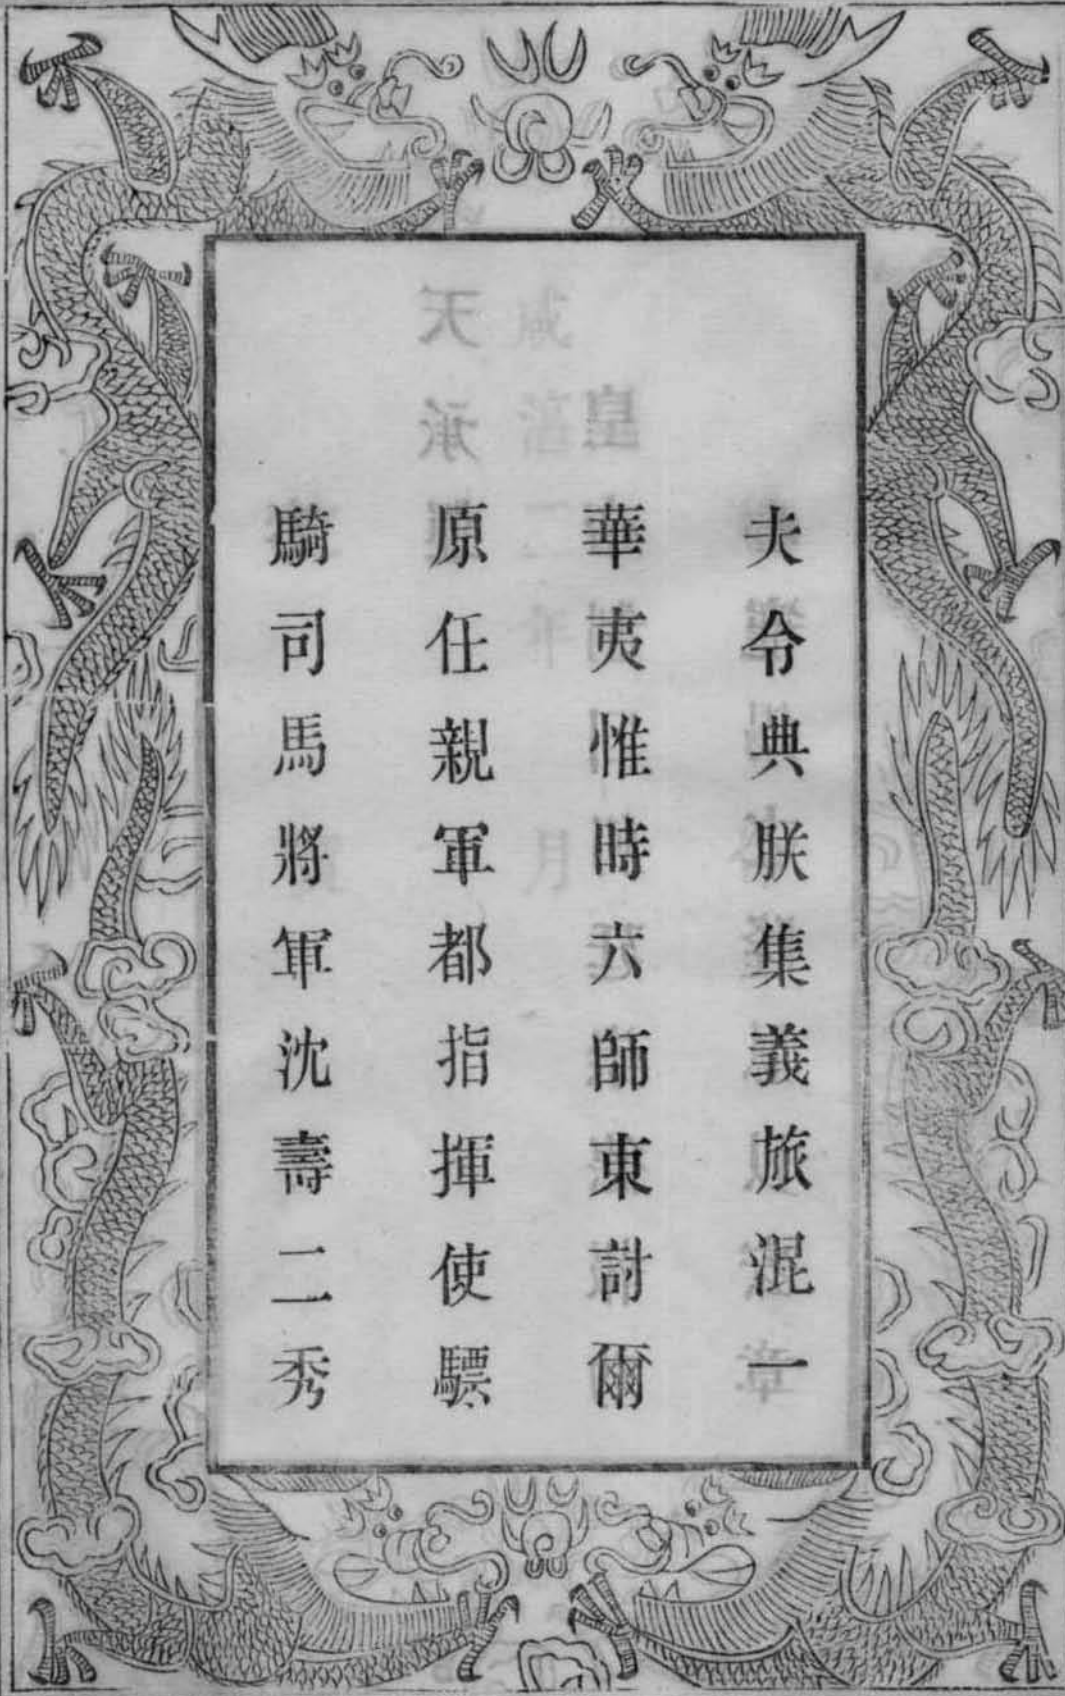 夫令典朕集義旅混一
華夷惟時六師東討爾
原任親軍都指揮使驃
騎司馬將軍沈壽二秀